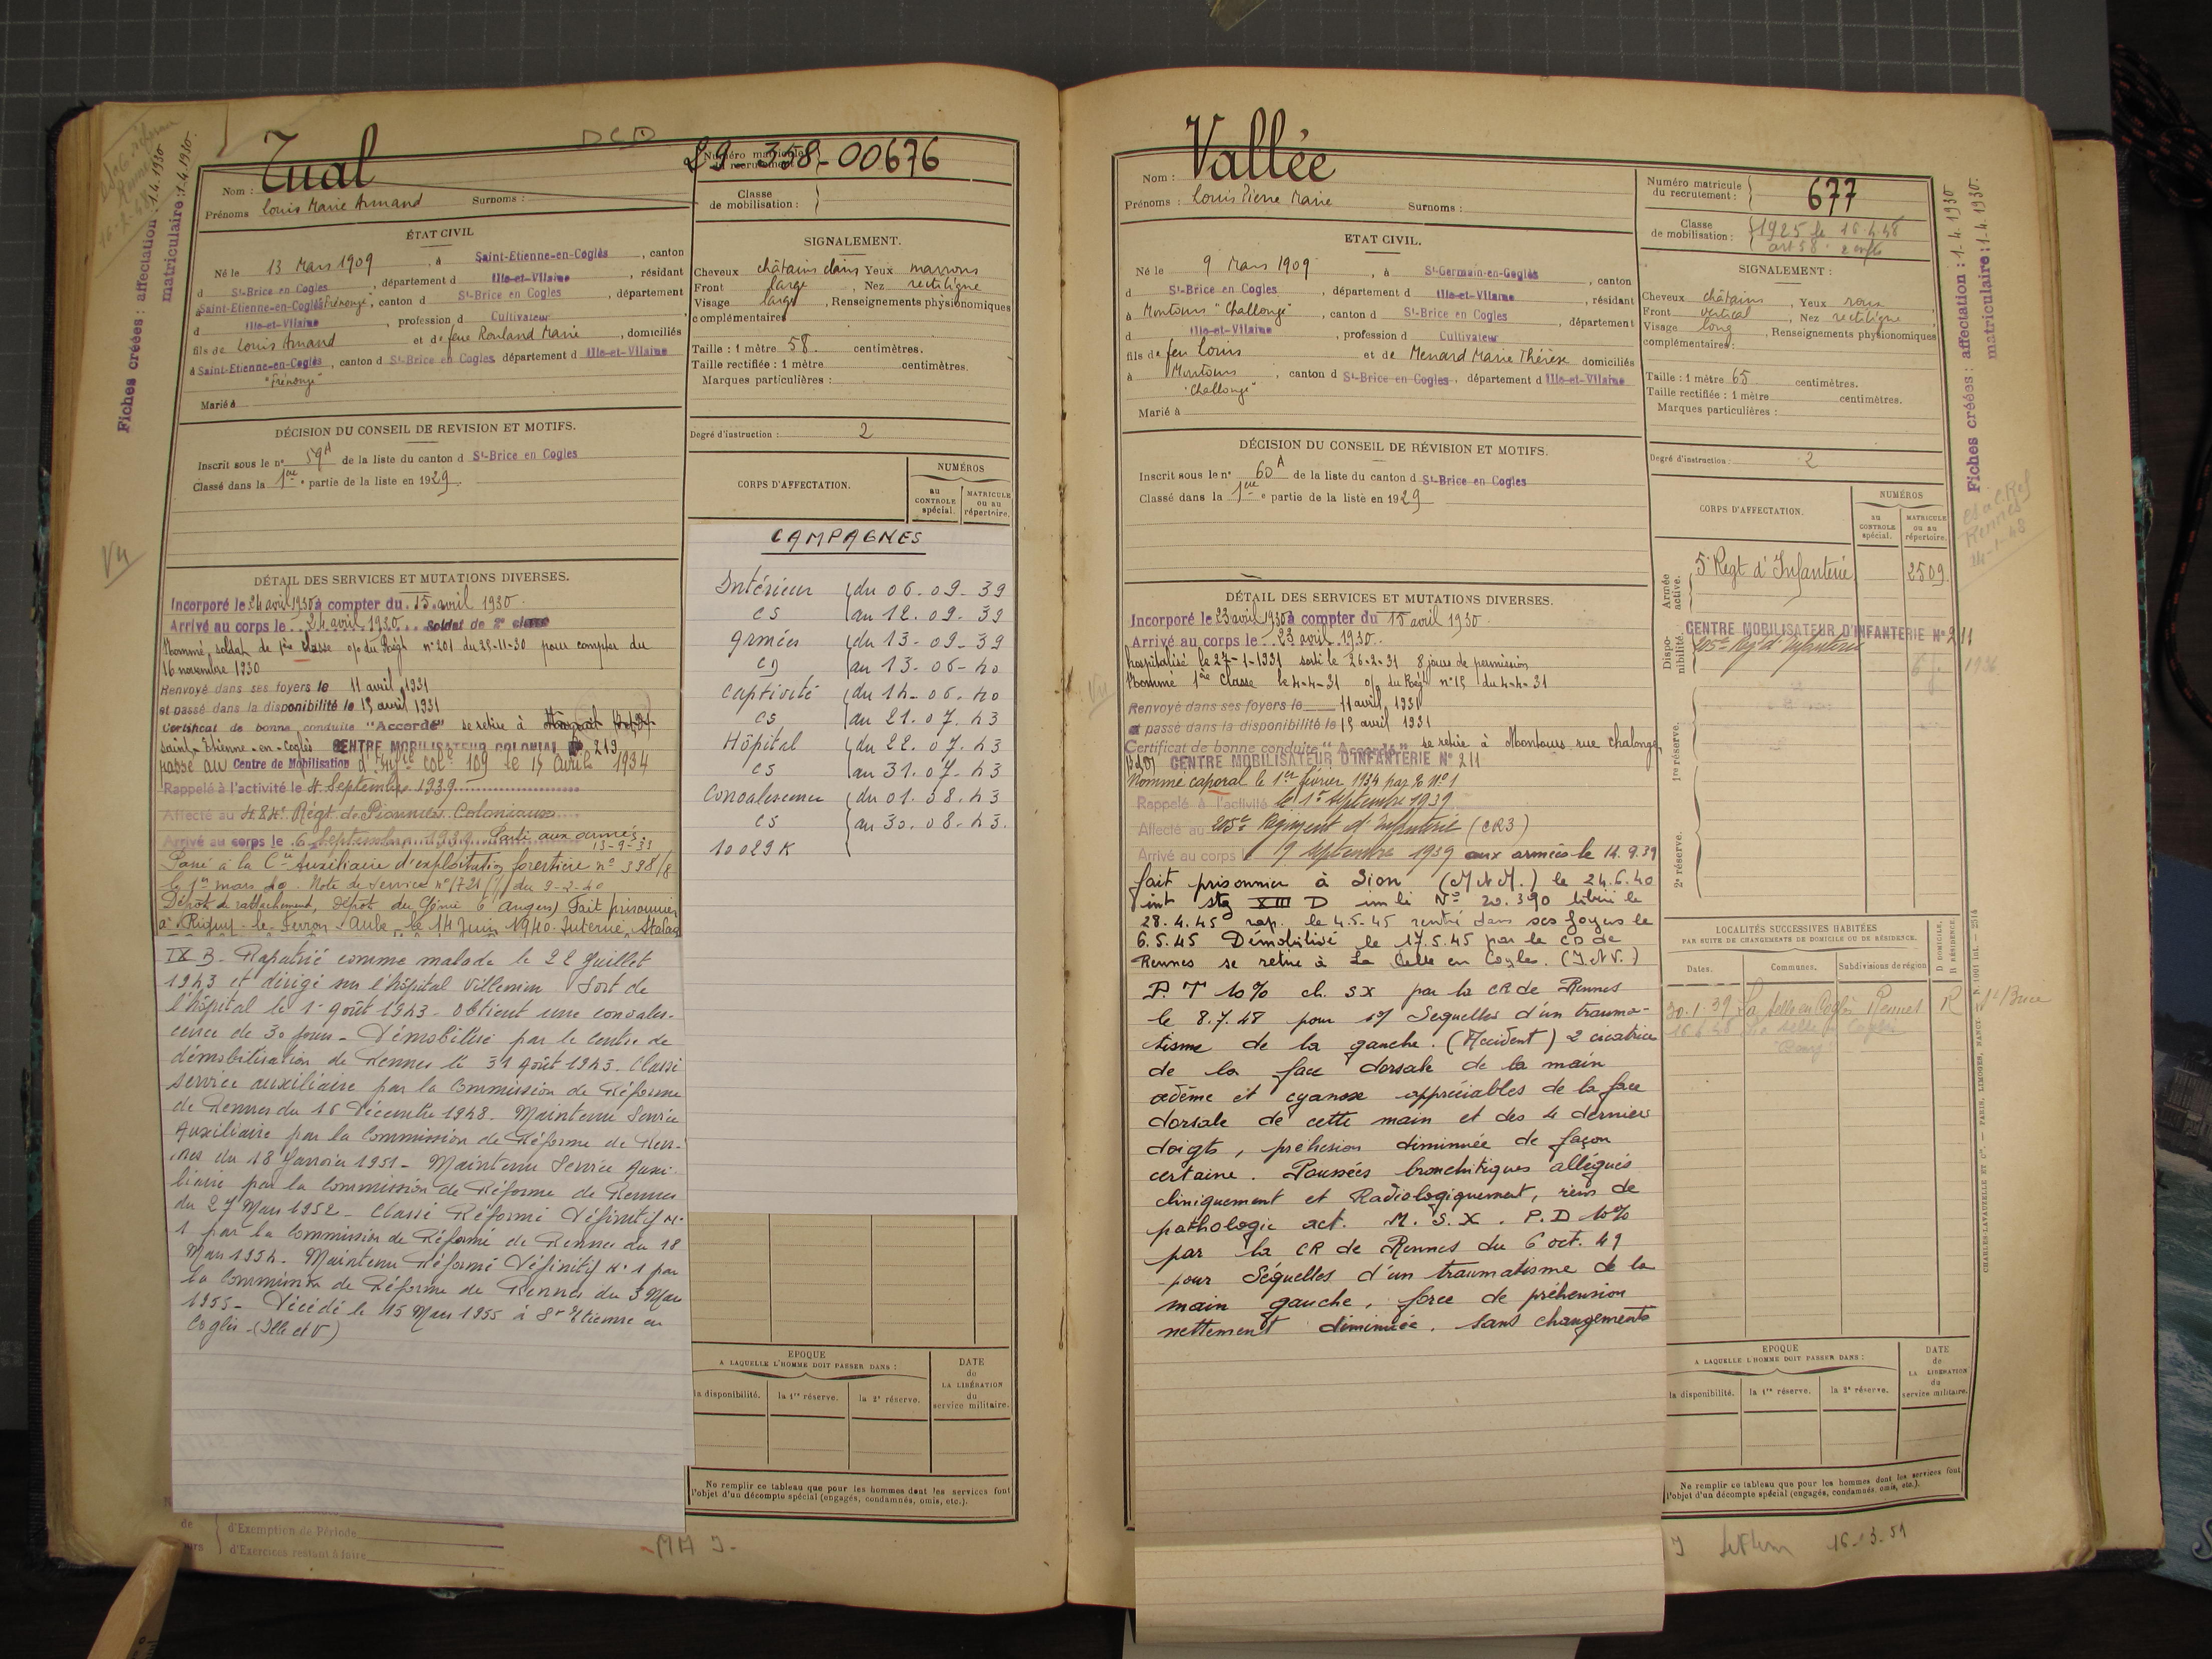 DCD
Fiches créées : affectation : 1.4.1930
matriculaire : 1.4.1930.
Vu
Nom : Tual
Prénoms Louis Marie Armand Surnoms :
29-358-00676
Numéro matricule
du recrutement
Classe
de mobilisation :
ÉTAT CIVIL
Né le 13 Mars 1909, à Saint-Etienne-en-Coglès, canton
d St-Brice en Cogles, département d Ille-et-Vilaine, résidant
à Saint-Etienne-en-Coglès "Frénouge", canton d St-Brice en Cogles, département
d Ille-et-Vilaine, profession d Cultivateur
fils de Louis Armand et de feue Rouland Marie, domiciliés
à Saint-Etienne-en-Coglès, canton d St-Brice en Cogles département d Ille-et-Vilaine
"Frénouge"
Marié à
SIGNALEMENT.
Cheveux châtains clairs Yeux marrons
Front large, Nez rectiligne
Visage large, Renseignements physionomiques
complémentaires
Taille : 1 mètre 58 centimètres.
Taille rectifiée : 1 mètre centimètres.
Marques particulières :
Degré d'instruction : 2
DÉCISION DU CONSEIL DE REVISION ET MOTIFS.
Inscrit sous le n° 59A de la liste du canton d St-Brice en Cogles
Classé dans la 1ère partie de la liste en 1929.
CORPS D'AFFECTATION.
NUMÉROS
au CONTROLE spécial.
MATRICULE ou au répertoire.
DÉTAIL DES SERVICES ET MUTATIONS DIVERSES.
Incorporé le 24 avril 1930 à compter du 15 avril 1930.
Arrivé au corps le 24 avril 1930. Soldat de 2e classe
Nommé soldat de 1ère classe o/ du Régt n° 201 du 25-11-30 pour compter du
16 novembre 1930
Renvoyé dans ses foyers le 11 avril 1931
et passé dans la disponibilité le 15 avril 1931
Certificat de bonne conduite "Accordé" se retire à
Saint-Etienne-en-Coglès CENTRE MOBILISATEUR COLONIAL N° 219
passé au Centre de Mobilisation d'Infie Cole 109 le 15 Avril 1934
Rappelé à l'activité le 4 Septembre 1939
Affecté au 484e Régt de Pionniers Coloniaux
Arrivé au corps le 6 Septembre 1939 Parti aux armées
13-9-39
Passé à la Cie Auxiliaire d'exploitation forestière n° 398/8
le 1er mars 40. Note de Service n° 1721/1 du 9-2-40
Dépôt de rattachement, dépôt du Génie 6 Angers) Fait prisonnier
à Rigny-le-Ferron - Aube, le 14 Juin 1940. Interné Stalag
IX B - Rapatrié comme malade le 22 Juillet
1943 et dirigé sur l'hôpital Villemin Sort de
l'hôpital le 1er Août 1943 - Obtient une convales-
cence de 30 jours - Démobilisé par le centre de
démobilisation de Rennes le 31 Août 1943. Classé
service auxiliaire par la Commission de Réforme
de Rennes du 16 Décembre 1948. Maintenu Service
Auxiliaire par la Commission de Réforme de Ren-
nes du 18 Janvier 1951 - Maintenu Service Auxi-
liaire par la Commission de Réforme de Rennes
du 27 Mars 1952 - Classé Réformé Définitif N°
1 par la Commission de Réforme de Rennes du 18
Mars 1954. Maintenu Réformé Définitif N° 1 par
la Commission de Réforme de Rennes du 3 Mars
1955 - Décédé le 15 Mars 1955 à St Etienne en
Coglès - (Ille et V)
CAMPAGNES
Intérieur du 06.09-39
CS au 12.09.39
Armées du 13-09-39
CD au 13-06-40
Captivité du 14-06-40
CS au 21.07.43
Hôpital du 22.07.43
CS au 31.07.43
Convalescence du 01.08.43
CS au 30.08.43.
10029 K
EPOQUE
A LAQUELLE L'HOMME DOIT PASSER DANS :
la disponibilité. la 1re réserve. la 2e réserve.
DATE de LA LIBÉRATION du service militaire.
Ne remplir ce tableau que pour les hommes dont les services font
l'objet d'un décompte spécial (engagés, condamnés, omis, etc.).
d'Exemption de Période
d'Exercices restant à faire
Nom : Vallée
Prénoms : Louis Pierre Marie Surnoms :
Numéro matricule
du recrutement : 677
Classe
de mobilisation : 1925 le 16.4.46
art 58 2 enfts
ETAT CIVIL.
Né le 9 Mars 1909, à St-Germain-en-Coglès, canton
d St-Brice en Cogles, département d Ille-et-Vilaine, résidant
à Montours "Challonge", canton d St-Brice en Cogles, département
d Ille-et-Vilaine, profession d Cultivateur
fils de feu Louis et de Menard Marie Thérèse domiciliés
à Montours, canton d St-Brice en Cogles, département d Ille-et-Vilaine
"Challonge"
Marié à
SIGNALEMENT :
Cheveux châtains, Yeux roux
Front vertical, Nez rectiligne
Visage long, Renseignements physionomiques
complémentaires :
Taille : 1 mètre 65 centimètres.
Taille rectifiée : 1 mètre centimètres.
Marques particulières :
Degré d'instruction : 2
DÉCISION DU CONSEIL DE RÉVISION ET MOTIFS.
Inscrit sous le n° 60A de la liste du canton d St-Brice en Cogles
Classé dans la 1ère partie de la liste en 1929
CORPS D'AFFECTATION.
NUMÉROS
au CONTROLE spécial.
MATRICULE ou au répertoire.
Armée active.
5e Regt d'Infanterie 2509
Disponibilité.
CENTRE MOBILISATEUR D'INFANTERIE N° 211
205e Regt d'Infanterie
1re réserve.
2e réserve.
DÉTAIL DES SERVICES ET MUTATIONS DIVERSES.
Incorporé le 23 avril 1930 à compter du 15 avril 1930.
Arrivé au corps le 23 avril 1930.
hospitalisé le 27-1-1931 sorti le 26-2-31 8 jours de permission
Nommé 1ère classe le 4-4-31 o/ du Régt n° 15 du 4-4-31
Renvoyé dans ses foyers le 11 avril 1931
et passé dans la disponibilité le 15 avril 1931
Certificat de bonne conduite "Accordé" se retire à Montours rue Chalonge
CENTRE MOBILISATEUR D'INFANTERIE N° 211
Nommé caporal le 1er février 1934 par D N° 1
Rappelé à l'activité le 1er septembre 1939
Affecté au 205e Régiment d'Infanterie (CR3)
Arrivé au corps le 9 septembre 1939 aux armées le 14.9.39
fait prisonnier à Sion (M et M.) le 24.6.40
int stg XIII D imle N° 20.390 libéré le
28.4.45 rap. le 4.5.45 rentré dans ses foyers le
6.5.45 Démobilisé le 17.5.45 par le CD de
Rennes se retire à La Selle en Cogles. (I et V.)
P.T 10% cl. SX par la CR de Rennes
le 8.7.48 pour 1°/ Sequelles d'un trauma-
tisme de la gauche. (Accident) 2 cicatrices
de la face dorsale de la main
œdème et cyanose appréciables de la face
dorsale de cette main et des 4 derniers
doigts, préhesion diminuée de façon
certaine. Poussées bronchitiques alléguées
cliniquement et Radiologiquement, rien de
pathologic act. M.S.X. P.D 10%
par la CR de Rennes du 6 oct. 49
pour Séquelles d'un traumatisme de la
main gauche, force de préhension
nettement diminuée. Sans changements
LOCALITÉS SUCCESSIVES HABITÉES
PAR SUITE DE CHANGEMENTS DE DOMICILE OU DE RÉSIDENCE.
Dates. Communes. Subdivisions de région D DOMICILE. R RÉSIDENCE.
30.1.39 La Selle en Coglès Rennes R St Brice
EPOQUE
A LAQUELLE L'HOMME DOIT PASSER DANS :
la disponibilité. la 1re réserve. la 2e réserve.
DATE de LA LIBÉRATION du service militaire.
Ne remplir ce tableau que pour les hommes dont les services font
l'objet d'un décompte spécial (engagés, condamnés, omis, etc.).
16-3-51
Fiches créées : affectation : 1-4-1930
matriculaire : 1-4-1930.
CHARLES-LAVAUZELLE ET Cie. — PARIS, LIMOGES, NANCY